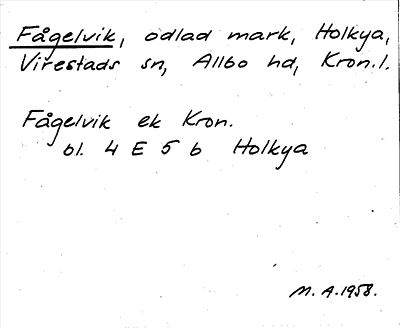 Fågelvik, odlad mark, Holkya,
Virestads sn, Allbo hd, Kron. l.
Fågelvik ek Kron.
bl. 4 E 5 b Holkya
M. A. 1958.